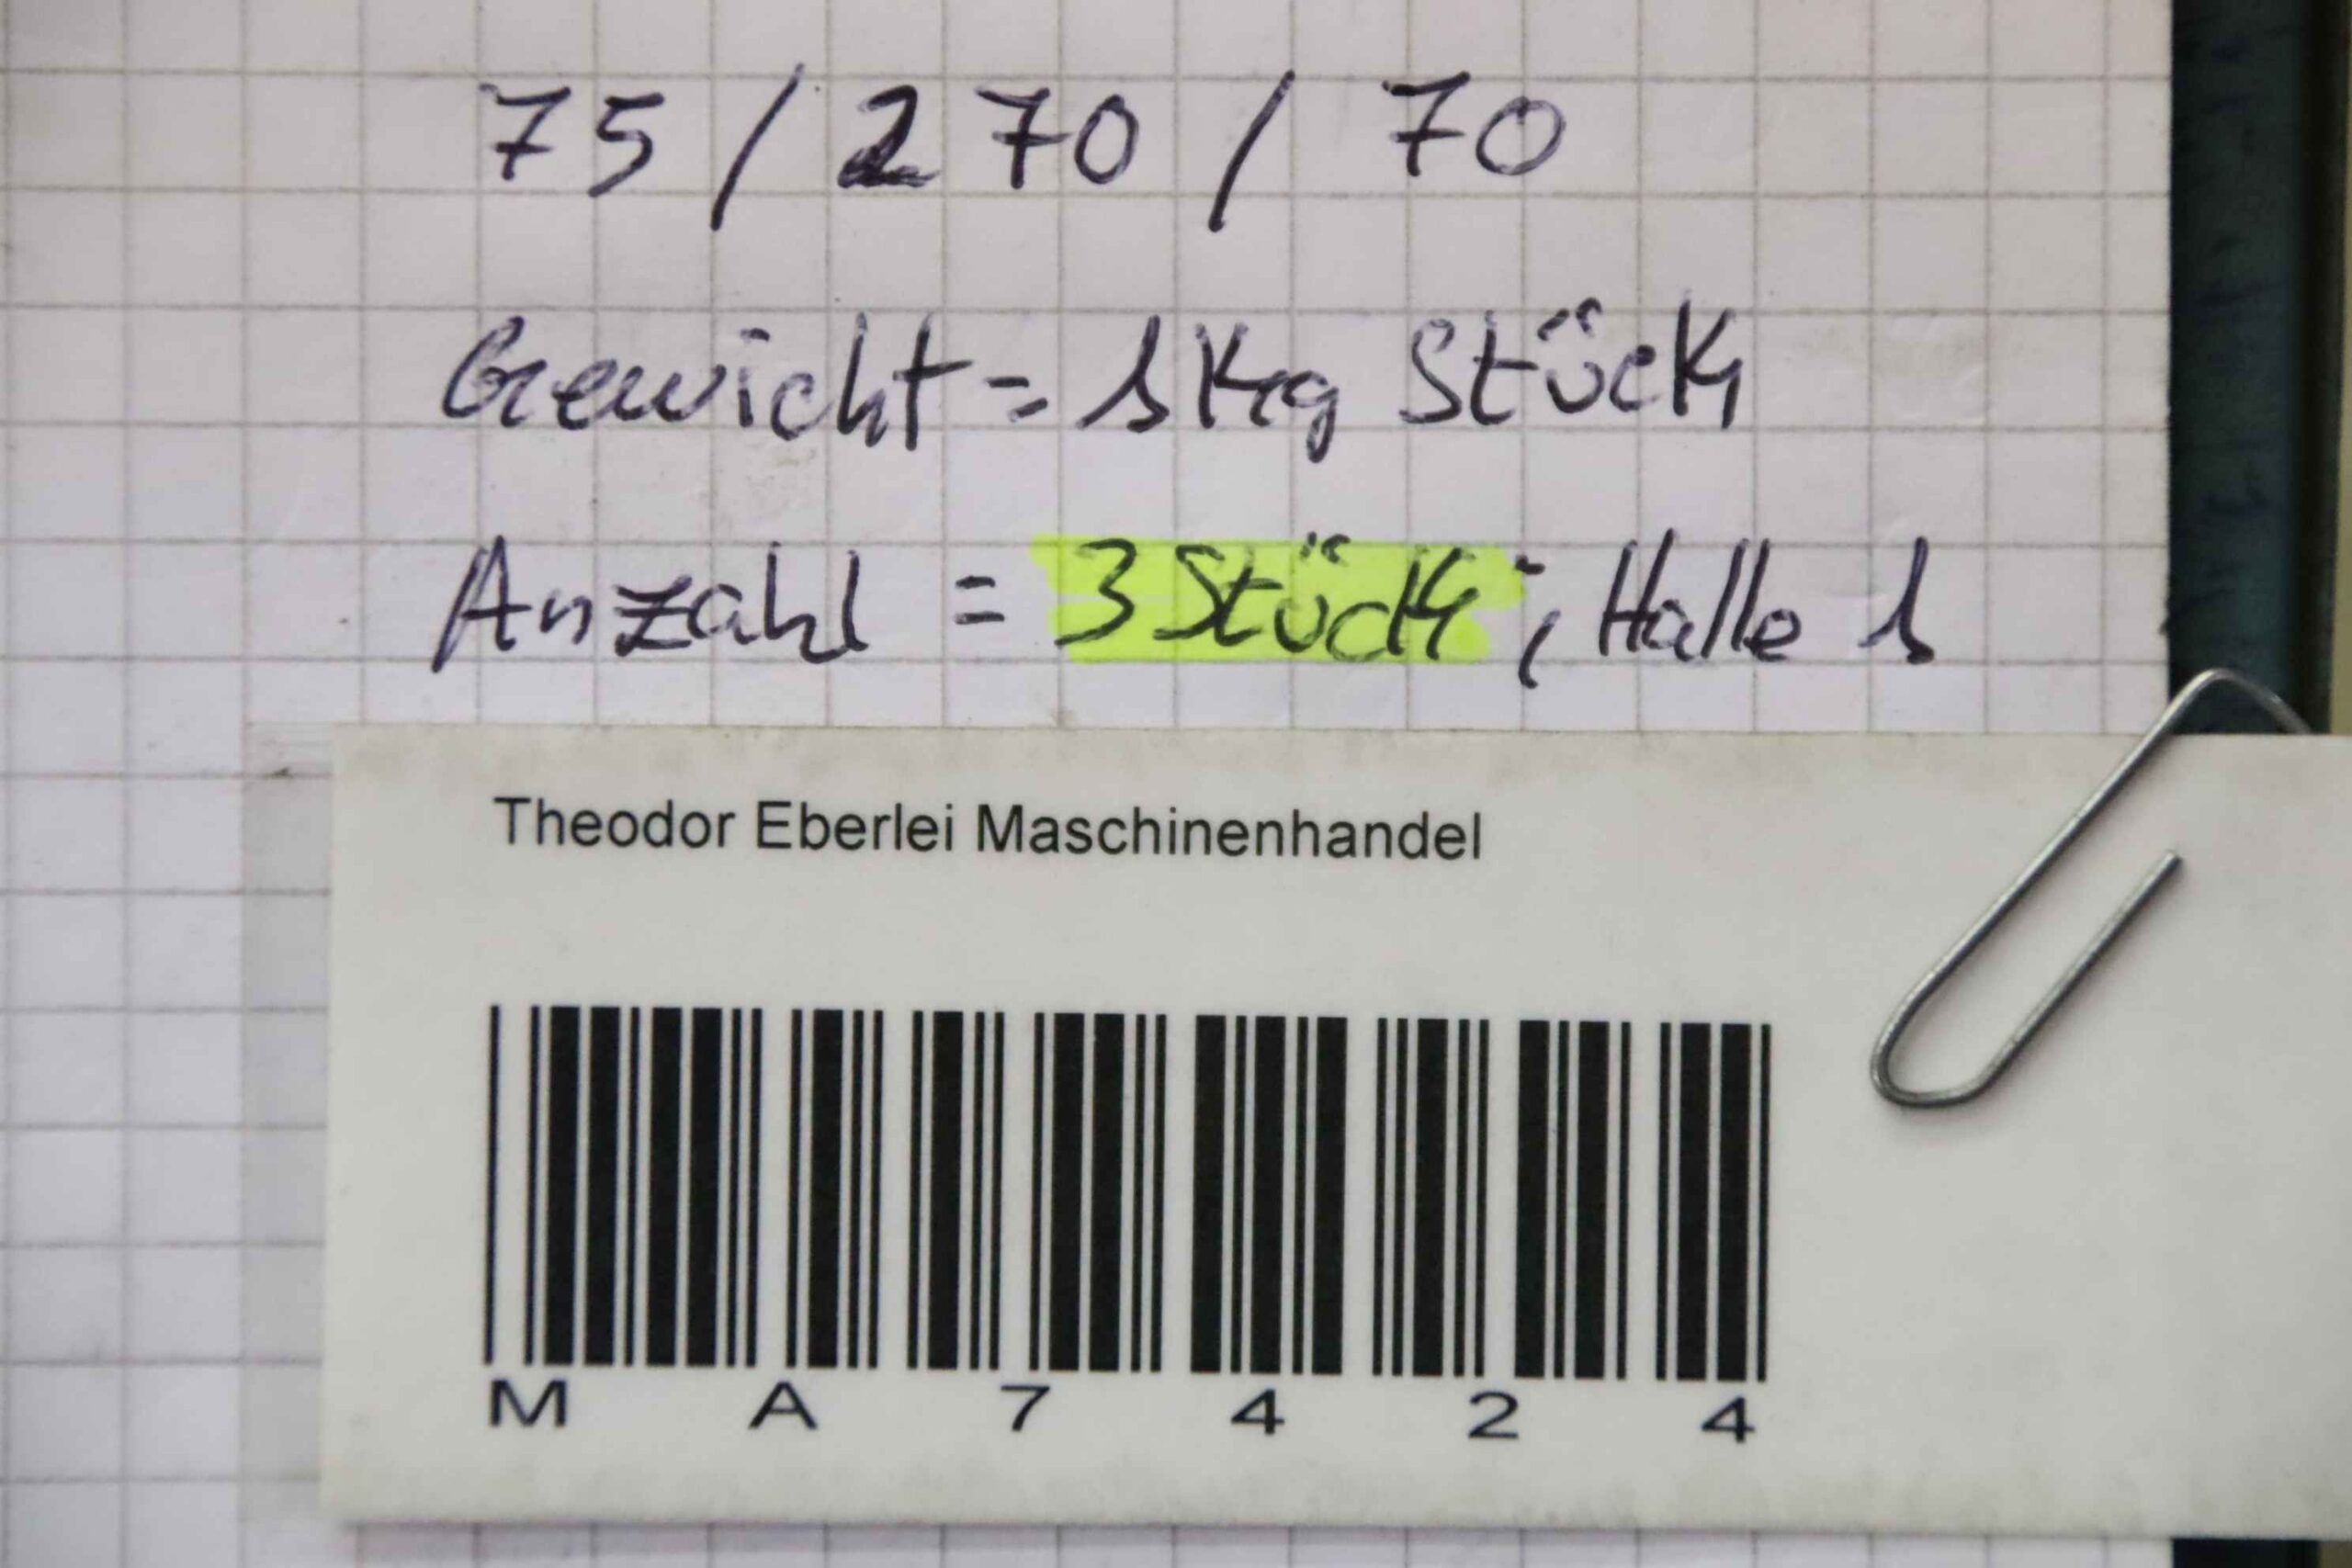 75 / 270 / 70
Gewicht = 1 Kg Stück
Anzahl = 3 Stück ; Halle 1
Theodor Eberlei Maschinenhandel
M A 7 4 2 4